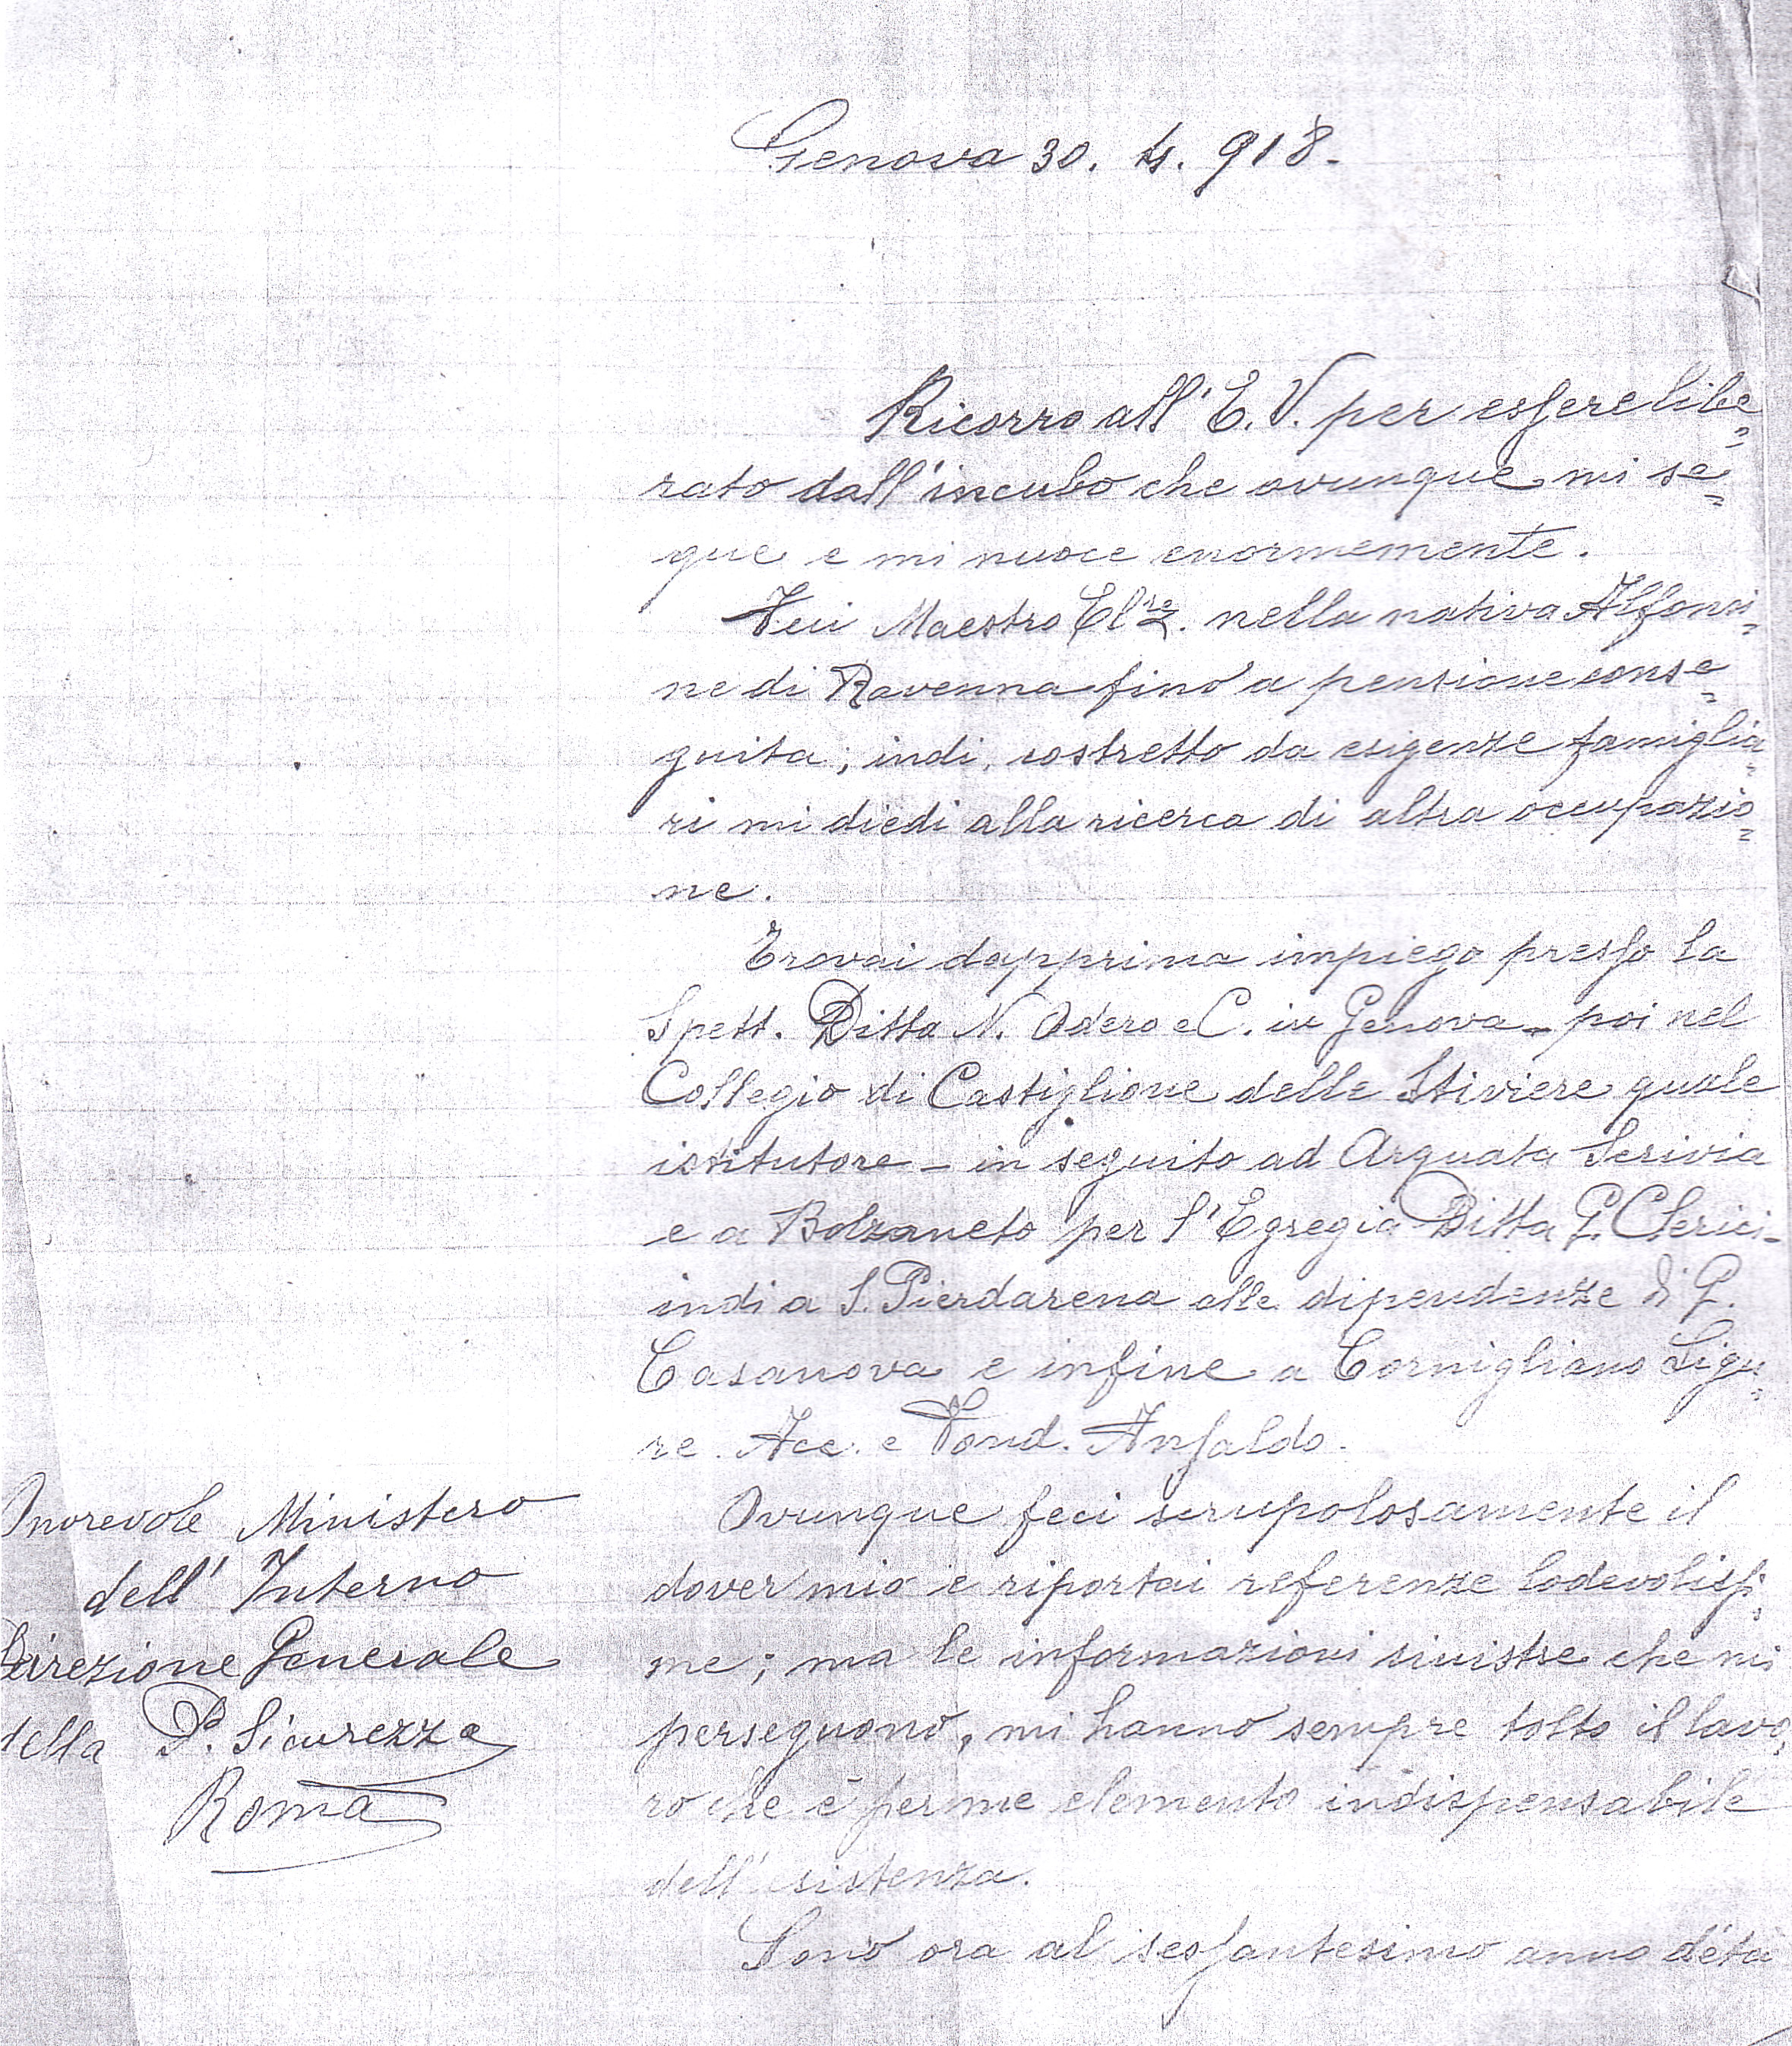 Genova 30. 4. 918.
Ricorro all' E. V. per essere libe=
rato dall'incubo che ovunque mi se=
gue e mi nuoce enormemente.
Feci Maestro El.re nella nativa Alfonsi=
ne di Ravenna fino a pensione conse=
guita; indi, costretto da esigenze famiglia=
ri mi diedi alla ricerca di altra occupazio=
ne.
Trovai dapprima impiego presso la
Spett. Ditta N. Odero e C. in Genova - poi nel
Collegio di Castiglione delle Stiviere quale
istitutore - in seguito ad Arquata Scrivia
e a Bolzaneto per l'Egregia Ditta G. Clerici -
indi a S. Pierdarena alle dipendenze di G.
Casanova e infine a Cornigliano Ligu=
re. Acc. e Fond. Ansaldo.
Ovunque feci scrupolosamente il
dover mio e riportai referenze lodevolissi=
me; ma le informazioni sinistre che mi
perseguono, mi hanno sempre tolto il lavo=
ro che è per me elemento indispensabile
dell'esistenza.
Sono ora al sessantesimo anno d'età
Onorevole Ministero
dell' Interno
Direzione Generale
della P. Sicurezza
Roma